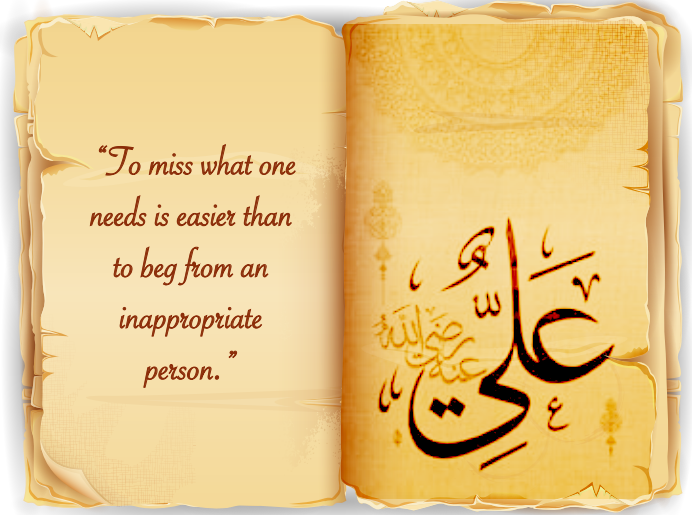 “To miss what one
needs is easier than
to beg from an
inappropriate
person.”
عَلِيٌّ
رضي الله
عنه